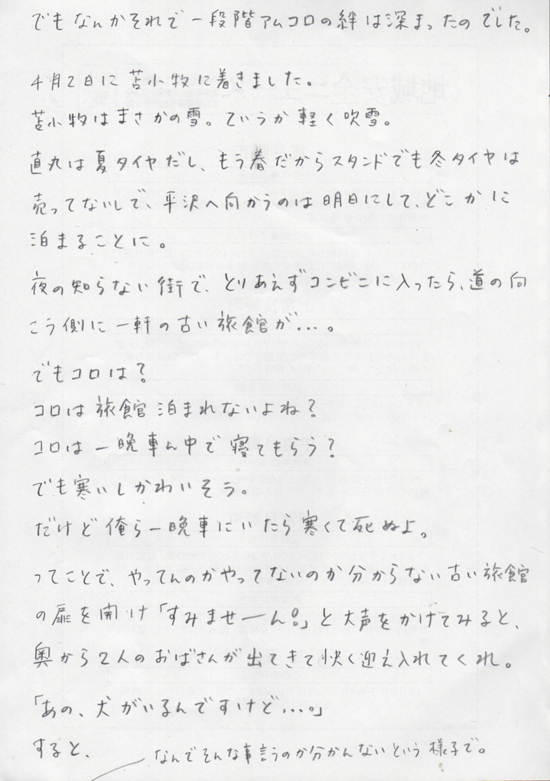 でもなんかそれで一段階アムコロの絆は深まったのでした。
4月2日に苫小牧に着きました。
苫小牧はまさかの雪。ていうか軽く吹雪。
直丸は夏タイヤだし、もう春だからスタンドでも冬タイヤは
売ってないしで、平沢へ向かうのは明日にして、どこかに
泊まることに。
夜の知らない街で、とりあえずコンビニに入ったら、道の向
こう側に一軒の古い旅館が…。
でもコロは?
コロは旅館泊まれないよね?
コロは一晩車ん中で寝てもらう?
でも寒いしかわいそう。
だけど俺ら一晩車にいたら寒くて死ぬよ。
ってことで、やってんのかやってないのか分からない古い旅館
の扉を開け「すみませーん!」と大声をかけてみると、
奥から2人のおばさんが出てきて快く迎え入れてくれ。
「あの、犬がいるんですけど…。」
すると、
なんでそんな事言うのか分かんないという様子で。